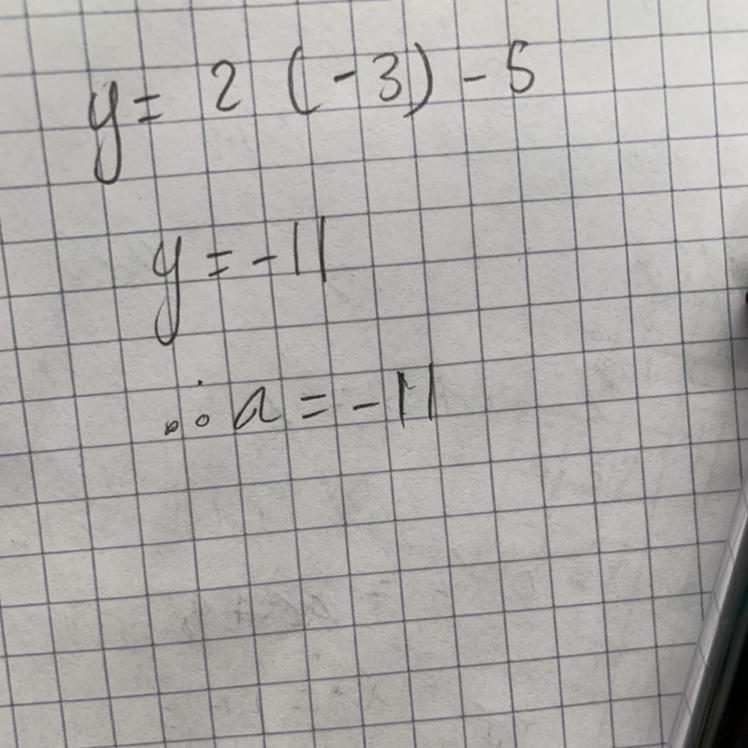 y = 2 (-3) - 5
y = -11
∴ a = -11